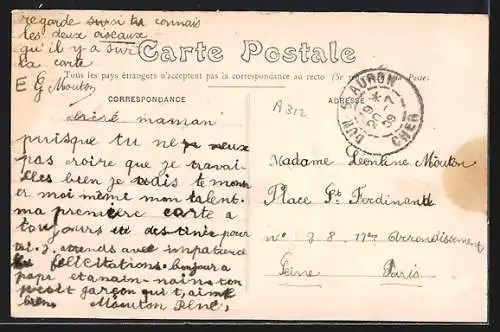 regarde sur si tu connais
les deux oiseaux
qu'il y a sur
la carte
E G Mouton
Carte Postale
Tous les pays étrangers n'acceptent pas la correspondance au recto (Se
CORRESPONDANCE
ADRESSE
A 312
DUN S AURON
CHER
maman
puisque tu ne veux
pas croire que je travai-
lles bien je vais te mont
er moi même mon talent.
ma première carte a
toujours destinée pour
toi. j. attends avec impatience
felicitations. bonjour a
papa et a nain-nain ton
petit garçon qui t, aime
bien Mouton René,
Madame Léontine Mouton
Place St. Ferdinand
n° 38. 17me Arrondissement
Seine Paris